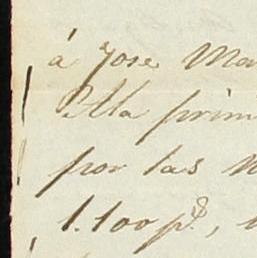 á Jose Ma
Illa prim
por las n
1.100 p.s,